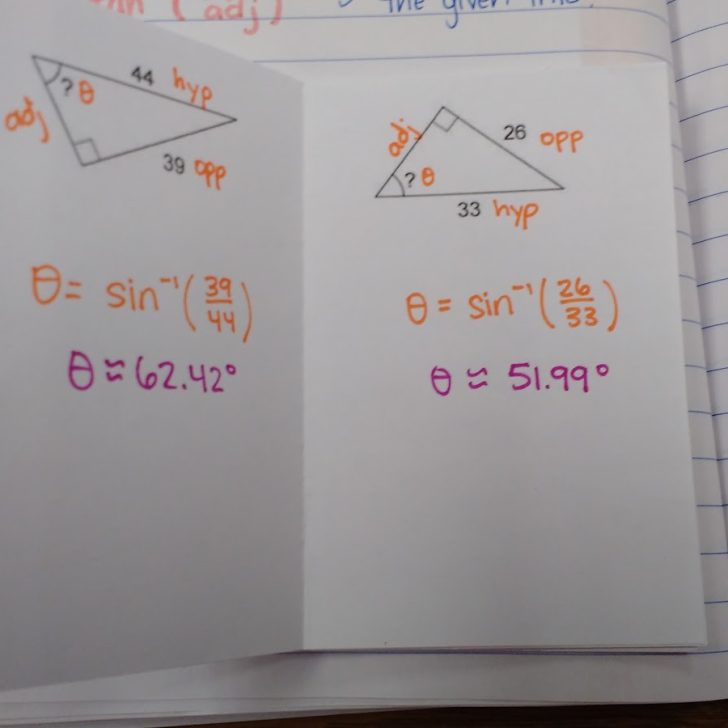 ( adj )
the given
44 hyp
? θ
adj
39 opp
θ = sin⁻¹(39/44)
θ ≈ 62.42°
adj
26 opp
? θ
33 hyp
θ = sin⁻¹(26/33)
θ ≈ 51.99°